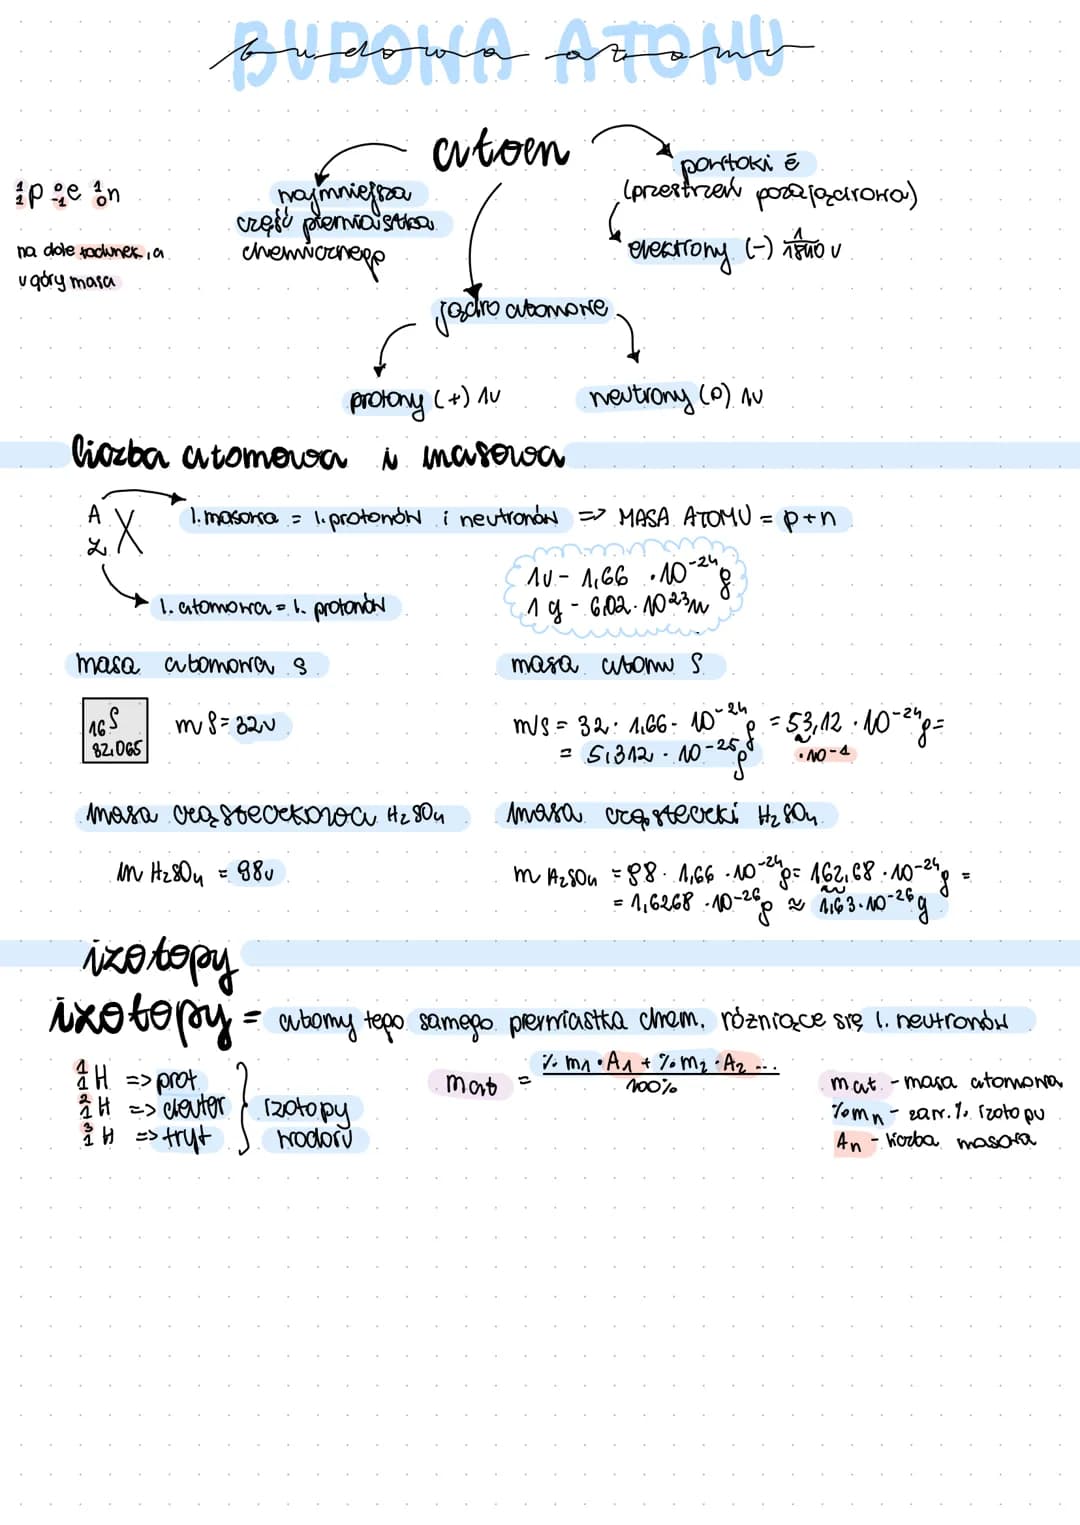 BUDOWA ATOMU
budowa atomu
atom
¹₁p ⁰₋₁e ¹₀n
na dole ładunek, a
u góry masa
najmniejsza
część pierwiastka
chemicznego
powłoki ē
(przestrzeń pozajądrowa)
elektrony (-) 1/1840 u
jądro atomowe
protony (+) 1u
neutrony (0) 1u
liczba atomowa i masowa
A
Z X
l. masowa = l. protonów i neutronów => MASA ATOMU = p+n
l. atomowa = l. protonów
1u - 1,66 · 10⁻²⁴g
1 g - 6,02 · 10²³u
masa atomowa S
masa atomu S
16 S
32,065
m S = 32u
m S = 32 · 1,66 · 10⁻²⁴g = 53,12 · 10⁻²⁴g =
= 5,312 · 10⁻²⁵g
· 10⁻¹
masa cząsteczkowa H₂SO₄
masa cząsteczki H₂SO₄
m H₂SO₄ = 98u
m H₂SO₄ = 98 · 1,66 · 10⁻²⁴g = 162,68 · 10⁻²⁴g =
= 1,6268 · 10⁻²⁶g ≈ 1,63 · 10⁻²⁶g
izotopy
izotopy = atomy tego samego pierwiastka chem. różniące się l. neutronów
¹₁H => prot
²₁H => deuter
³₁H => tryt
izotopy
wodoru
mat = %m₁ · A₁ + %m₂ · A₂ ... / 100%
mat. - masa atomowa
%mn - zaw. % izotopu
An - liczba masowa